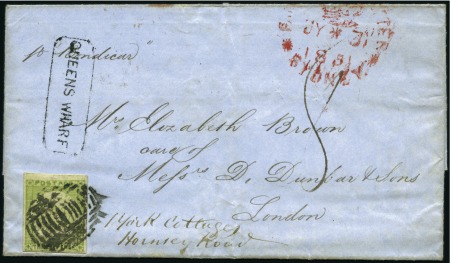 QUEENS WHARF
Mrs Elizabeth Brown
care of
Messrs D. Dunbar & Sons
London
1 York Cottages
Hornsey Road